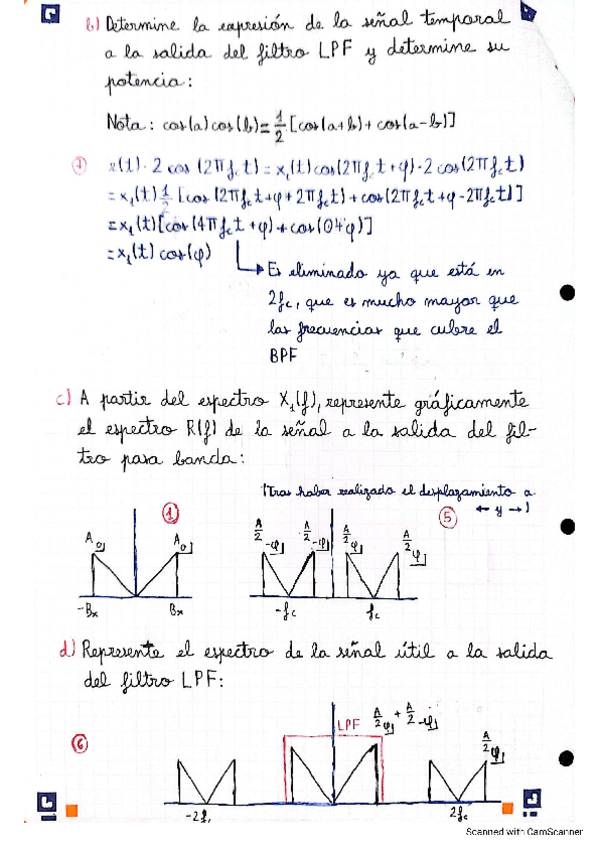 b) Determine la expresión de la señal temporal
a la salida del filtro LPF y determine su
potencia:
Nota: cos(a)cos(b)=1/2[cos(a+b)+cos(a-b)]
x(t)·2cos(2πf_ct)=x₁(t)cos(2πf_ct+φ)·2cos(2πf_ct)
=x₁(t)1/2[cos(2πf_ct+φ+2πf_ct)+cos(2πf_ct+φ-2πf_ct)]
=x₁(t)[cos(4πf_ct+φ)+cos(0+φ)]
=x₁(t)cos(φ)
Es eliminado ya que está en
2f_c, que es mucho mayor que
las frecuencias que cubre el
BPF
c) A partir del espectro X₁(f), represente gráficamente
el espectro R(f) de la señal a la salida del fil-
tro pasa banda:
(Tras haber realizado el desplazamiento a
← y →)
① ⑤
A 0| A 0| A/2 -φ| A/2 -φ| A/2 φ| A/2 φ|
-Bx Bx -f_c f_c
d) Represente el espectro de la señal útil a la salida
del filtro LPF:
⑥ LPF A/2 φ| + A/2 -φ| A/2 φ|
2f_c
Scanned with CamScanner